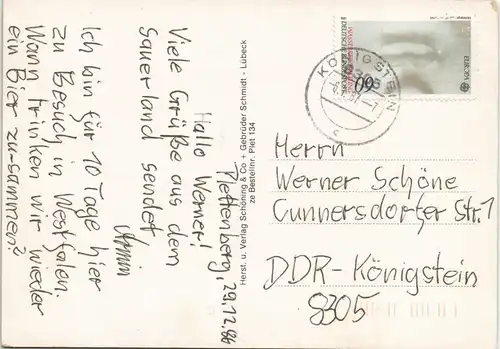 Plettenberg, 29.12.86
Hallo Werner!
Viele Grüße aus dem
Sauerland sendet
Armin
Ich bin für 10 Tage hier
zu Besuch in Westfalen.
Wann trinken wir wieder
ein Bier zusammen?
Herst. u. Verlag Schöning & Co + Gebrüder Schmidt - Lübeck
ze Bestellnr. Plet 134
EUROPA
DEUTSCHE BUNDESPOST
60
KÖNIGSTEIN
Herrn
Werner Schöne
Gunnersdorfer Str. 1
DDR-Königstein
8305